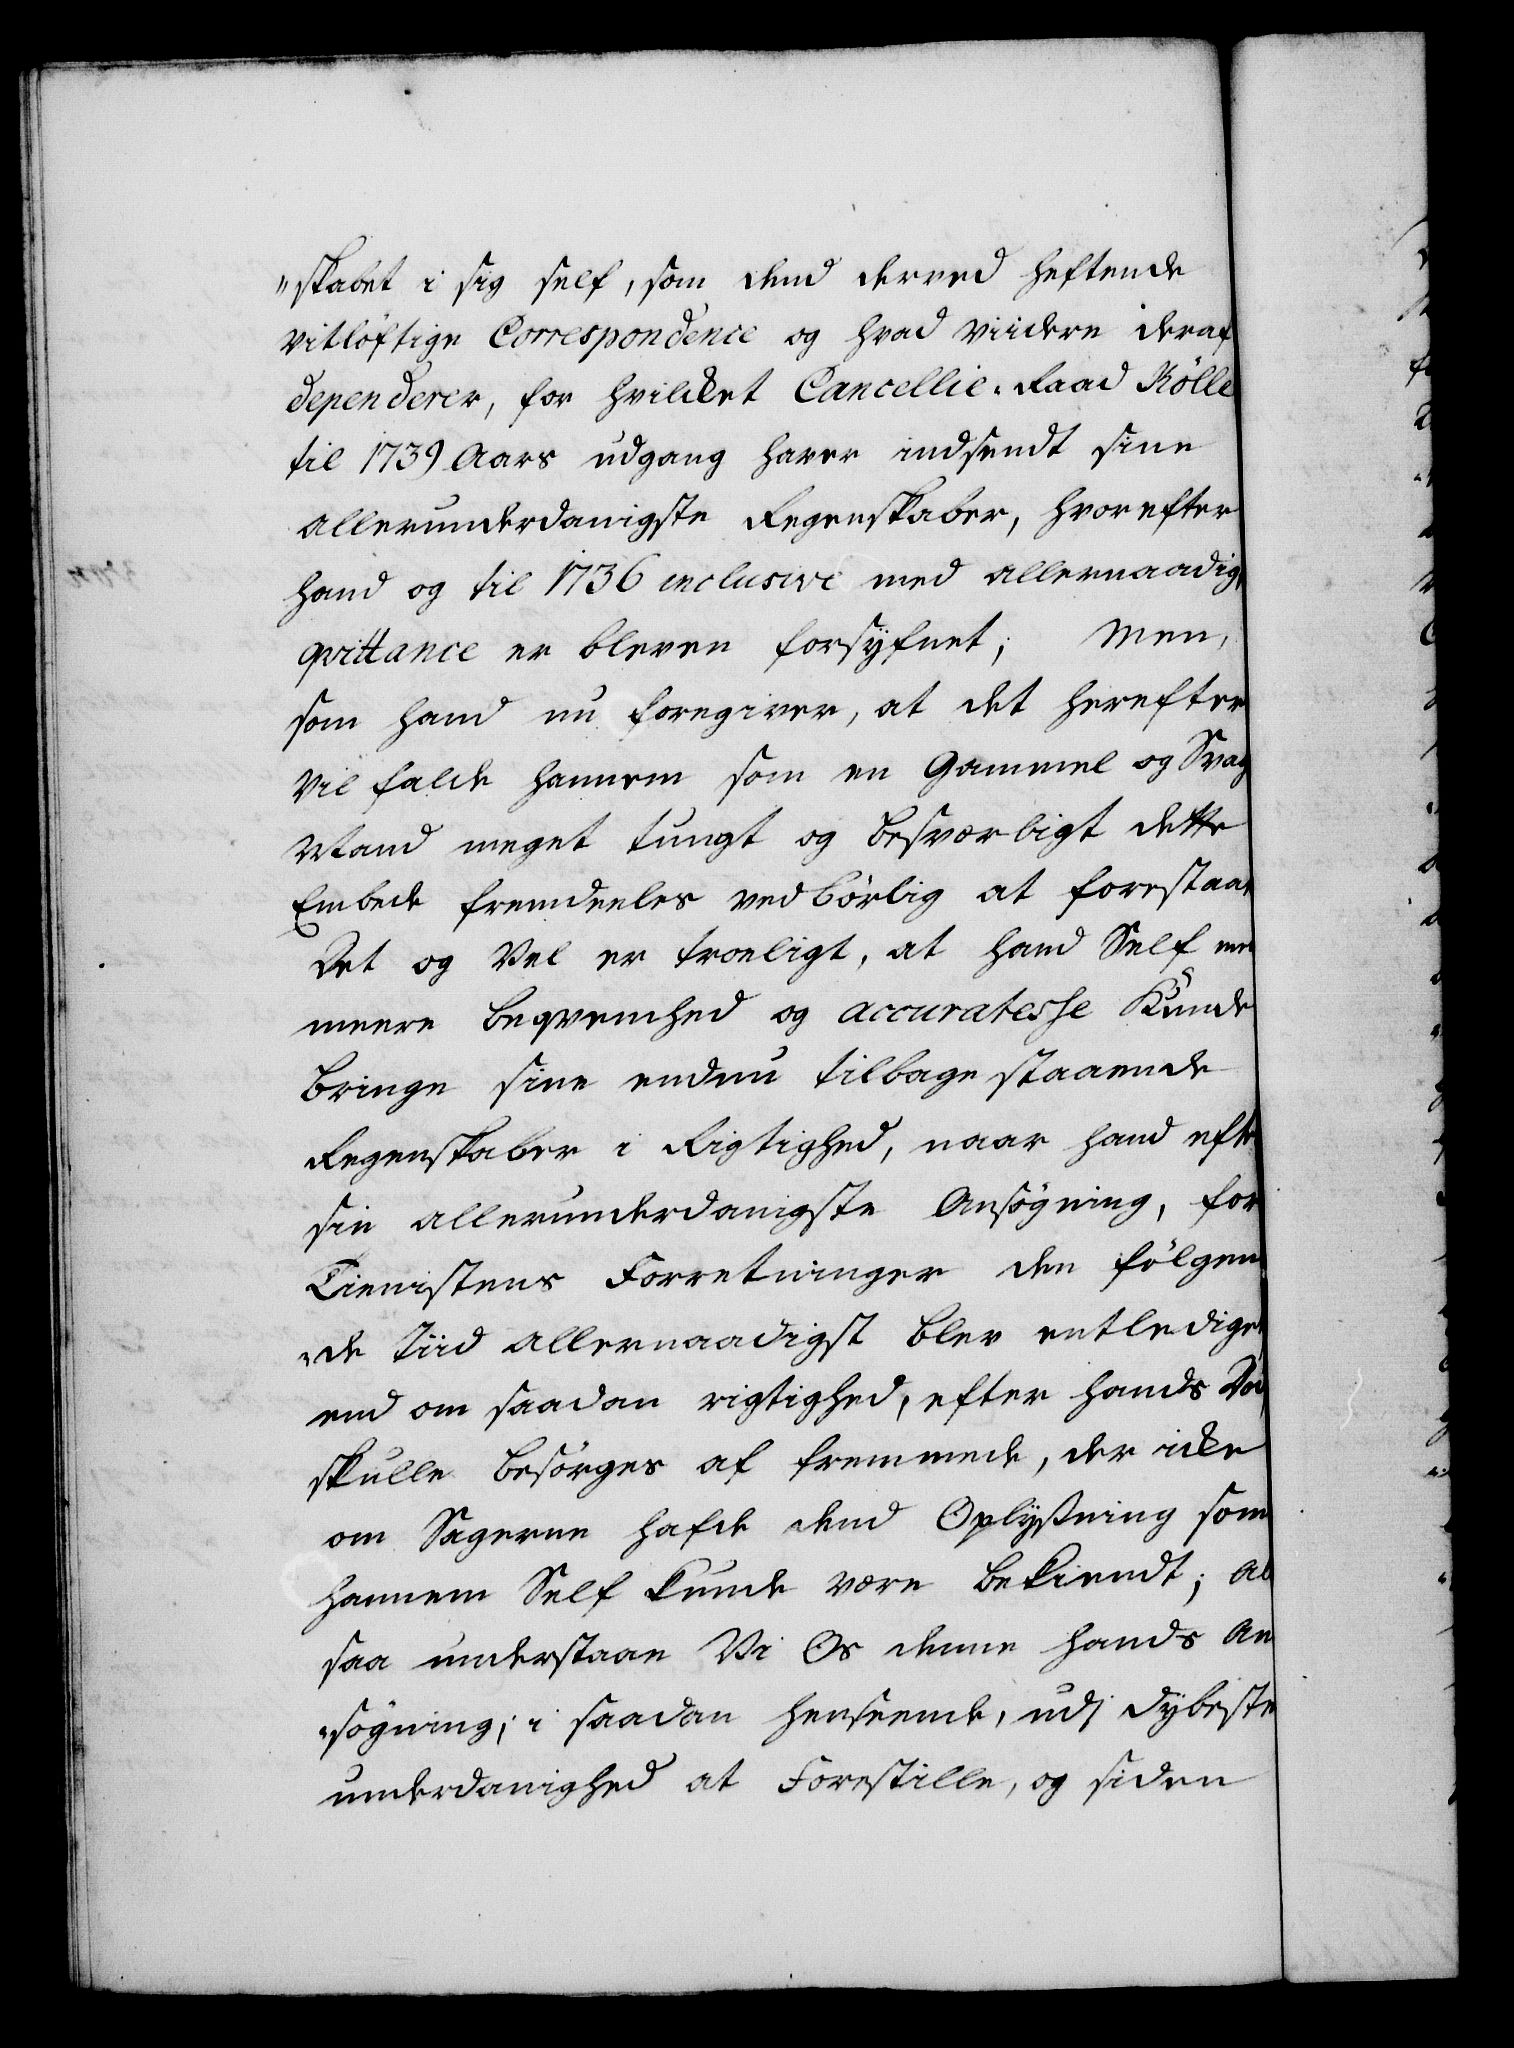 "skabet i sig self, som dend derved heftende
vitløftige Correspondence og hvad viidere deraf
dependerer, for hvilcket Cancellie-Raad Kölle
til 1739 Aars udgang haver indsendt sine
allerunderdanigste Regenskaber, hvorefter
hand og til 1736 inclusive med allernaadig
qvittance er bleven forsÿfnet; Men,
som hand nu foregiver, at det herefter
vil falde hannem som en Gammel og Svag
Mand meget tungt og besværligt dette
Embede fremdeeles vedbörlig at forestaae
Det og Vel er troeligt, at hand Self med
meere beqvemhed og accuratesse Kunde
bringe sine endnu tilbage staaende
Regenskaber i Rigtighed, naar hand efter
sin allerunderdanigste Ansögning, for
Tienistens Forretninger den fölgen
"de Tiid allernaadigst blev entlediget
end om saadan rigtighed, efter hands Död
skulle besörges af fremmede, der icke
om Sagerne hafde dend Oplÿsning som
hannem Self kunde være bekiendt; Al
saa understaae Vi Os denne hands An
"sögning, i saadan henseende, udj dÿbeste
underdanighed at Forestille, og siden